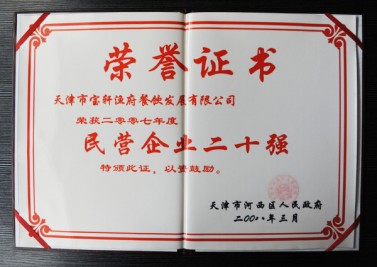 荣誉证书
天津市宝轩渔府餐饮发展有限公司
荣获二零零七年度
民营企业二十强
特颁此证，以资鼓励。
天津市河西区人民政府
二〇〇八年三月